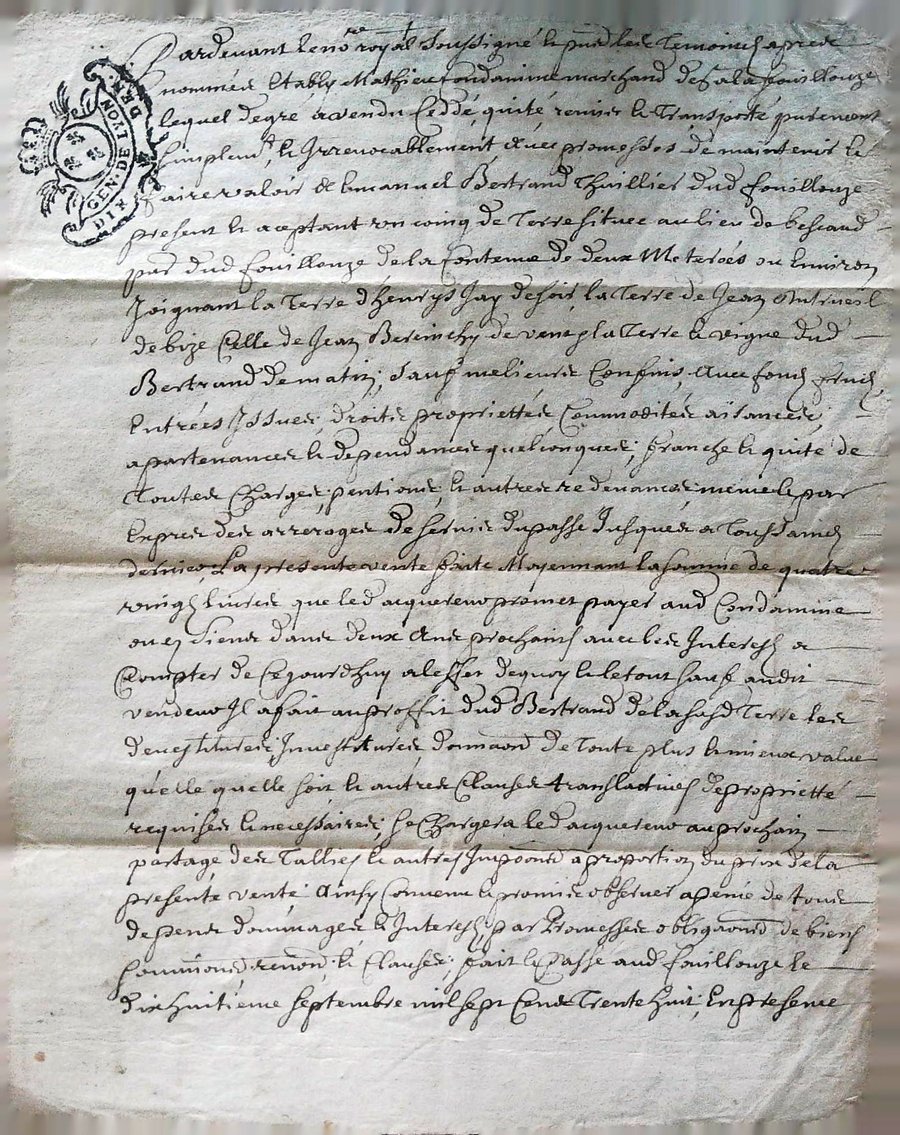 GEN. DE LYON
DIX DEN
Pardevant le no.re royal Soussigné & pnt les Temoins apres
nommés Etably Mathieu Condamine marchand de la fouillouze
lequel de gré a vendu Ceddé, quité remis & Transporté purement
Simplemt, & Irrevocablement Avec promesses de maintenir &
faire valoir A Emanuel Bertrand Thuillier dud fouillouze
present & aceptant un coing de Terre situee au lieu de
pssе dud fouillouze de la Contenue de deux Meterées ou Environ
Joignant la Terre d'henrys Jay de soir, la Terre de Jean
de bize Celle de Jean de vent & la Terre & vigne dud
Bertrand de matin, Sauf melieurs Confins, Avec fond, fruits,
Entrées Issues droits proprietté Commodités aisances,
apartenances & dependances quelconques, franche & quite de
Toutes Charges, pentions, & autres redevances même par
Expres des arreroges de servis du passé Jusques a Toussaints
dernier, La presente vente faite Moyennant la somme de quatre
vingt livres que led acquereur promet payer aud Condamine
ou es Siens dans deux Ans prochains avec les Interests a
Compter de Cejourdhuy a leffet dequoy & le tout sauf audit
vendeur Il a fait au proffit dud Bertrand de la susd Terre les
devestitures Investitures de Toute plus & mieux value
quelle quelle soit & autres Clauses translatives de proprietté
requises & necessaires, se Chargera led acquereur au prochain
partage des Tallies & autres a proportion du prix de la
presente vente Ainsy Convenu & promis observer a peine de tous
depens dommages & Interests par Promesses de biens
& Clauses, fait & Passé aud fouillouze le
dix huitieme septembre mil sept Cens Trente huit, En presence